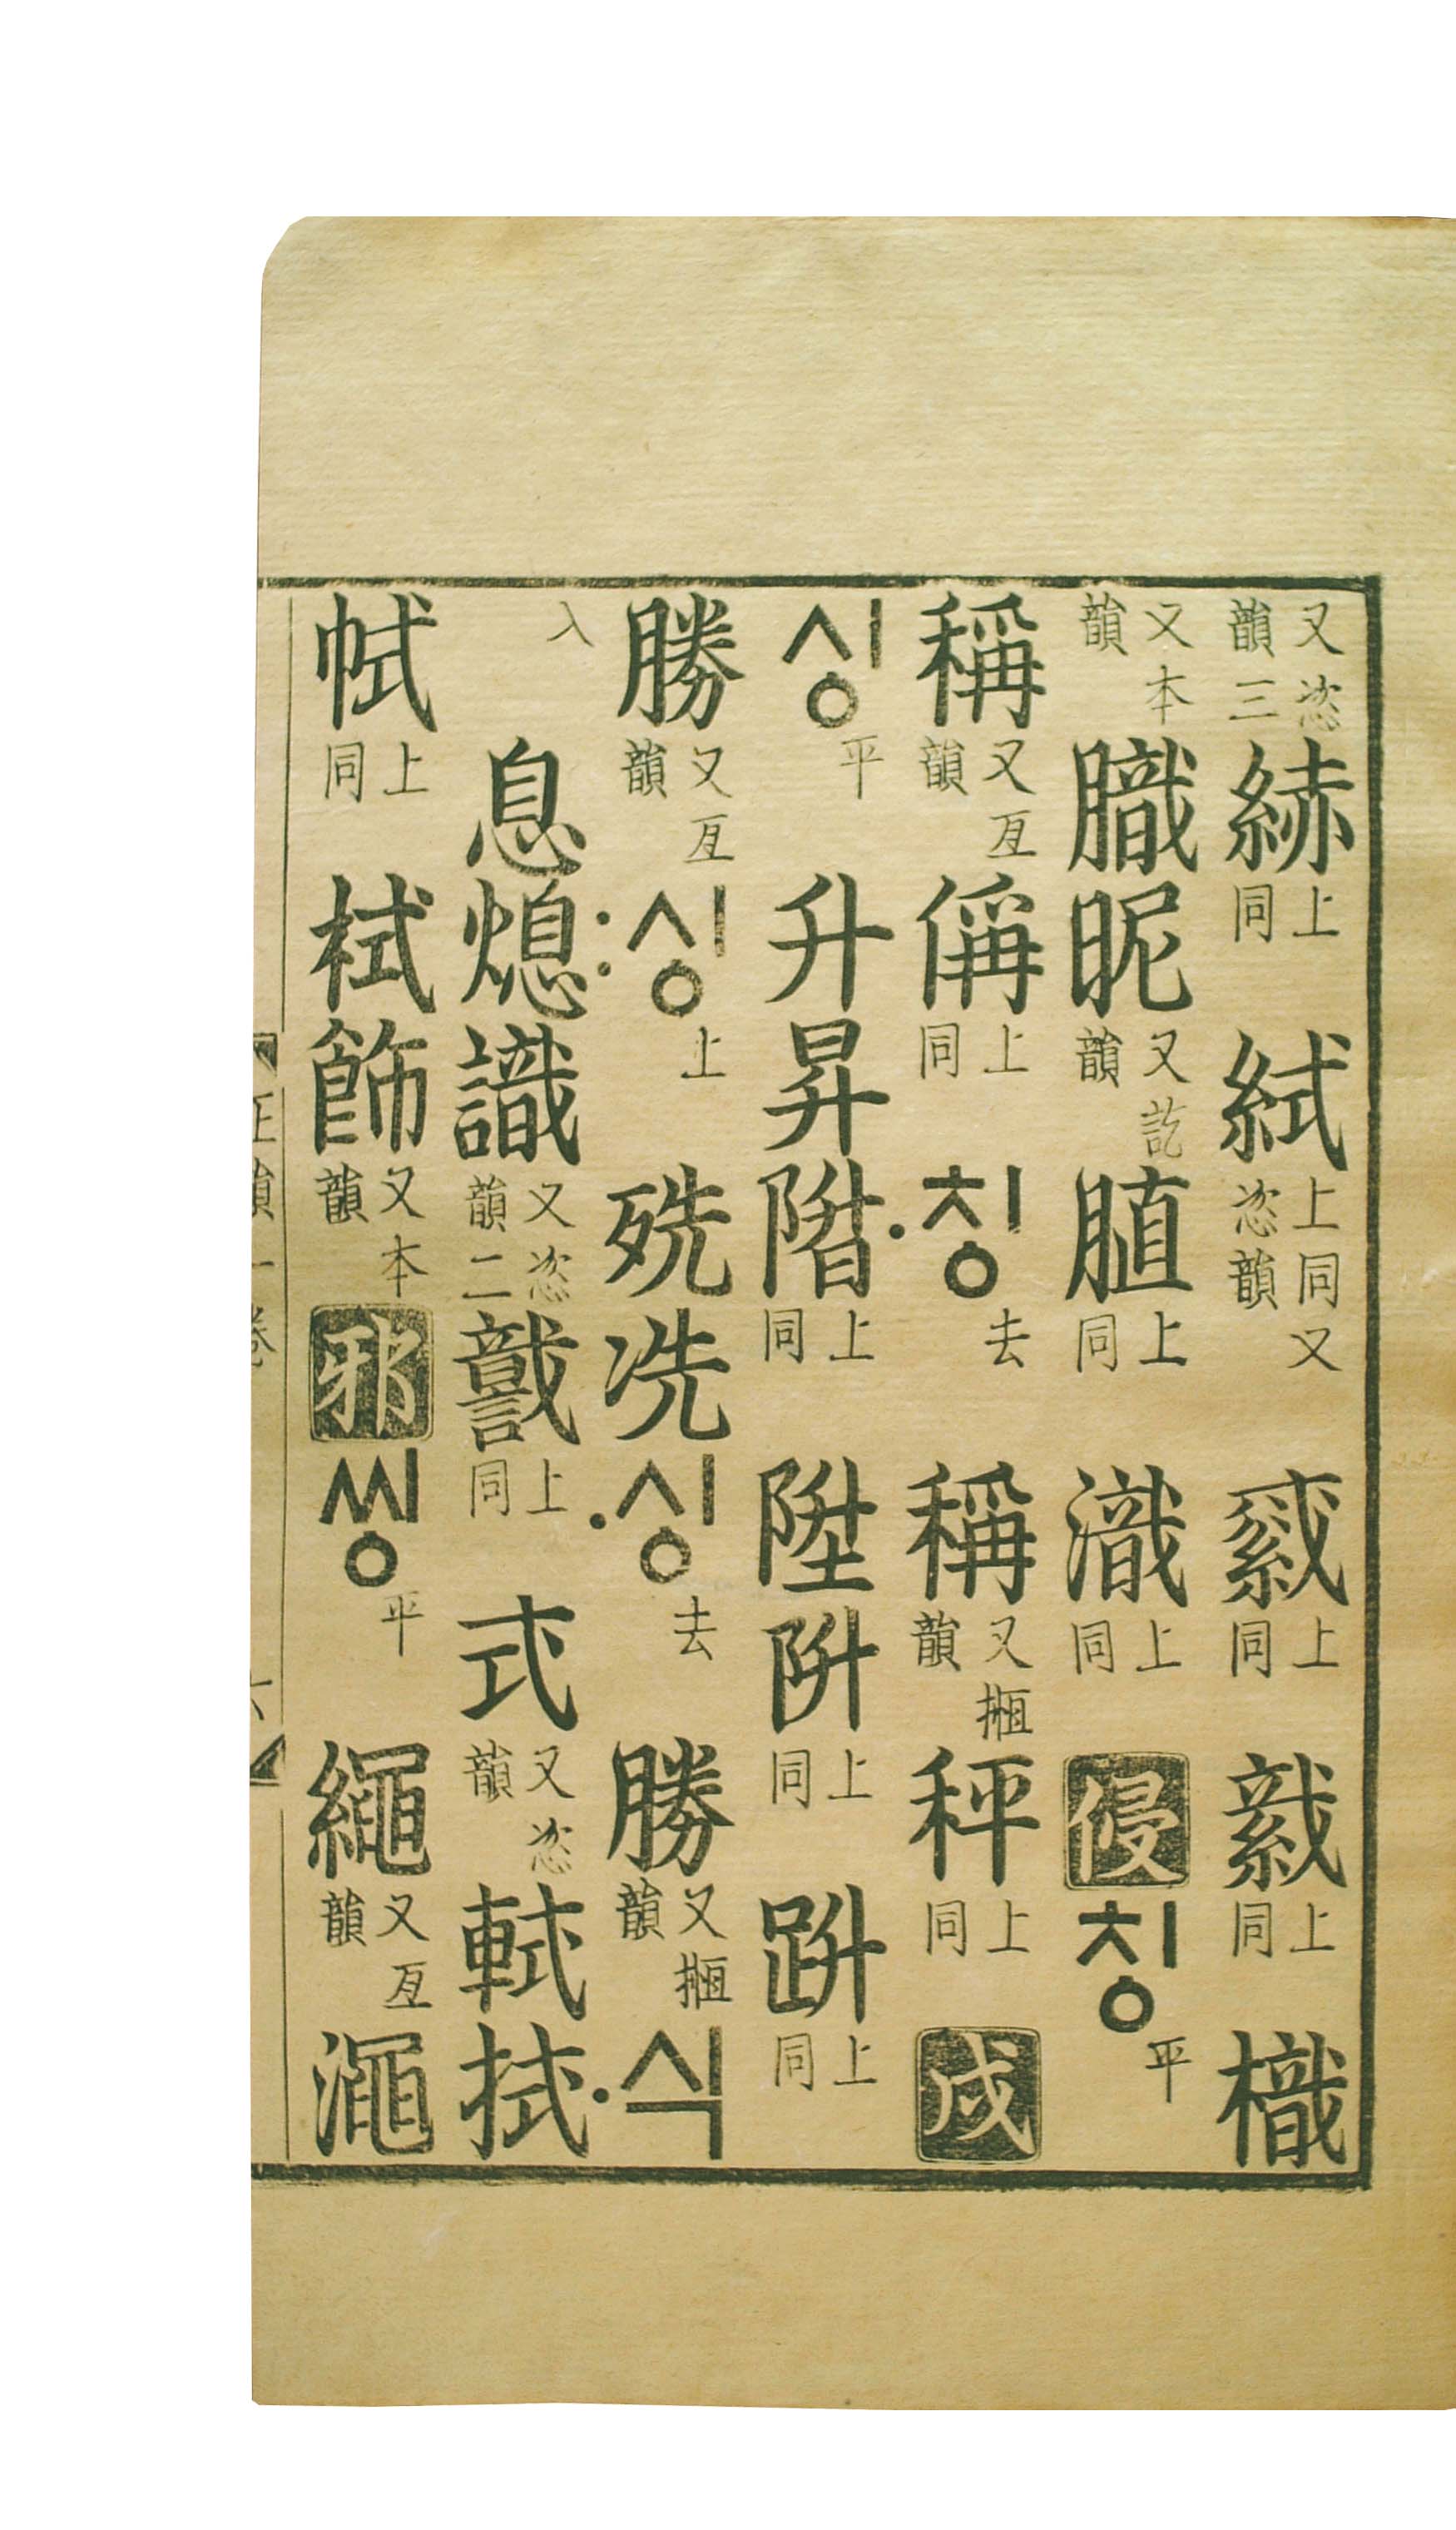 又恣韻三 上同 上同又恣韻 上同 上同 樴
又本韻 膱 昵 又訖韻 上同 上同 侵 칭 平
稱 又亙韻 偁 上同 ·칭 去 稱 又揯韻 秤 上同 戌
싱 平 升 昇 上同 陞 阩 上同 上同
勝 又亙韻 :싱 上 冼 ·싱 去 勝 又揯韻 ·식
入 息 熄 識 又恣韻二 上同 式 又恣韻 軾 拭
上同 栻 飾 又本韻 邪 씽 平 繩 又亙韻 澠
正韻一卷 六